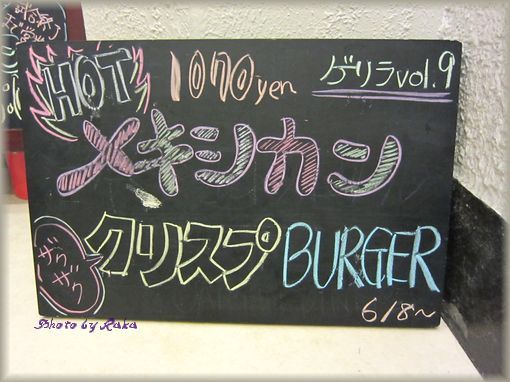 HOT 1070yen ゲリラvol.9
メキシカン
クリスプ BURGER
ザク
ザク
6/8~
Photo by Raka